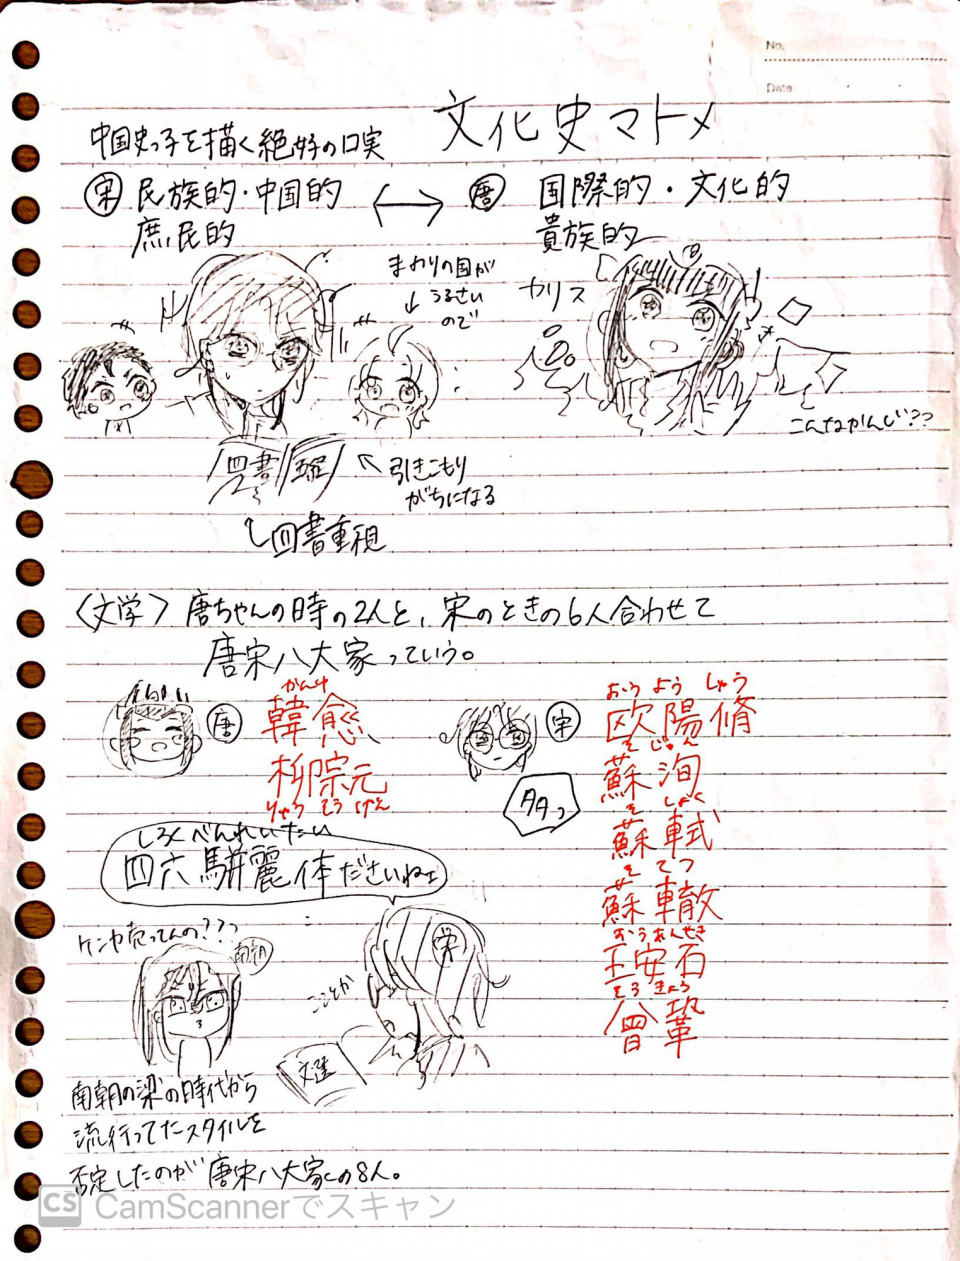 No.
Date
文化史マトメ
中国史っ子を描く絶好の口実
宋 民族的・中国的
庶民的
唐 国際的・文化的
貴族的
まわりの国が
うるさい
ので
カリス
こんなかんじ??
四書 五経
引きこもり
がちになる
四書重視
〈文学〉唐ちゃんの時の2人と、宋のときの6人合わせて
唐宋八大家っていう。
唐
かんゆ
韓愈
柳宗元
りゅう そう げん
宋
タタっ
おう よう しゅう
欧陽脩
そ じゅん
蘇洵
そ しょく
蘇軾
そ てつ
蘇轍
おうあんせき
王安石
そう きょう
曾鞏
しろくべんれいたい
四六駢麗体ださいねェ
ケンカ売ってんの???
南朝
宋
こことか
文選
南朝の梁の時代から
流行ってたスタイルを
否定したのが唐宋八大家の8人。
CS CamScannerでスキャン